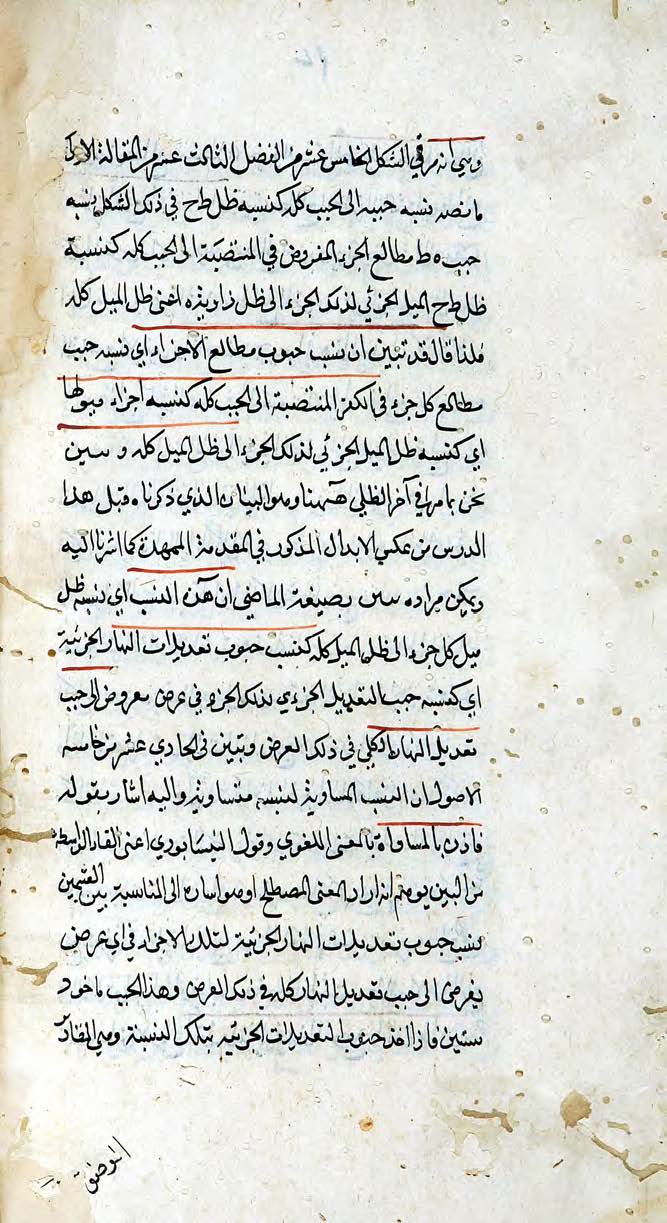 وهي انه مر في الشكل الخامس عشر من الفصل الثالث عشر من المقالة الاولى
ما نصه نسبه جيبه الى الجيب كله كنسبه ظل طح في ذلك الشكل نسبه
جيب ه ط مطالع الجزء المفروض في المنتصبة الى الجيب كله كنسبة
ظل طح الميل الجزئي لذلك الجزء الى ظل زاوية ه اعنى ظل الميل كله
فلذا قال قد تبين ان نسب جيوب مطالع الاجزاء اي نسبه جيب
مطالع كل جزء في الكرة المنتصبة الى الجيب كله كنسبه اجزاء ميولها
اي كنسبه ظل الميل الجزئي لذلك الجزء الى ظل الميل كله و سين
نحن بامر في آخر الظلي ههنا وهو البيان الذي ذكرناه قبل هذا
الدرس من عكس الابدال المذكور في المقدمة الممهدة كما اشرنا اليه
ويمكن مراده بصيغة الماضي ان هذه النسب اي نسبه ظل
ميل كل جزء الى ظل الميل كله كنسب جيوب تعديلات النهار الجزئية
اي كنسبه جيب التعديل الجزءي لذلك الجزء في عرض معروض الى جيب
تعديل النهار الكلي في ذلك العرض وتبين في الحادي عشر من خامسه
الاصول ان النسب المساوية لنسبه متساوية واليه اشار بقوله
فاذن بالمساواة بالمعنى اللغوي وقول النيسابوري اعنى القاء الواسطة
من البين يوهم انه اراد المعنى المصطلح او هو اشاره الى المناسبة بين القسمين
نسب جيوب تعديلات النهار الجزئية لتلك الاجزاء في اي عرض
يفرض الى جيب تعديل النهار كله في ذلك العرض وهذا الجيب ماخوذ
ستين فاذا اخذ جيوب التعديلات الجزئيه بتلك النسبة وهي المقادير